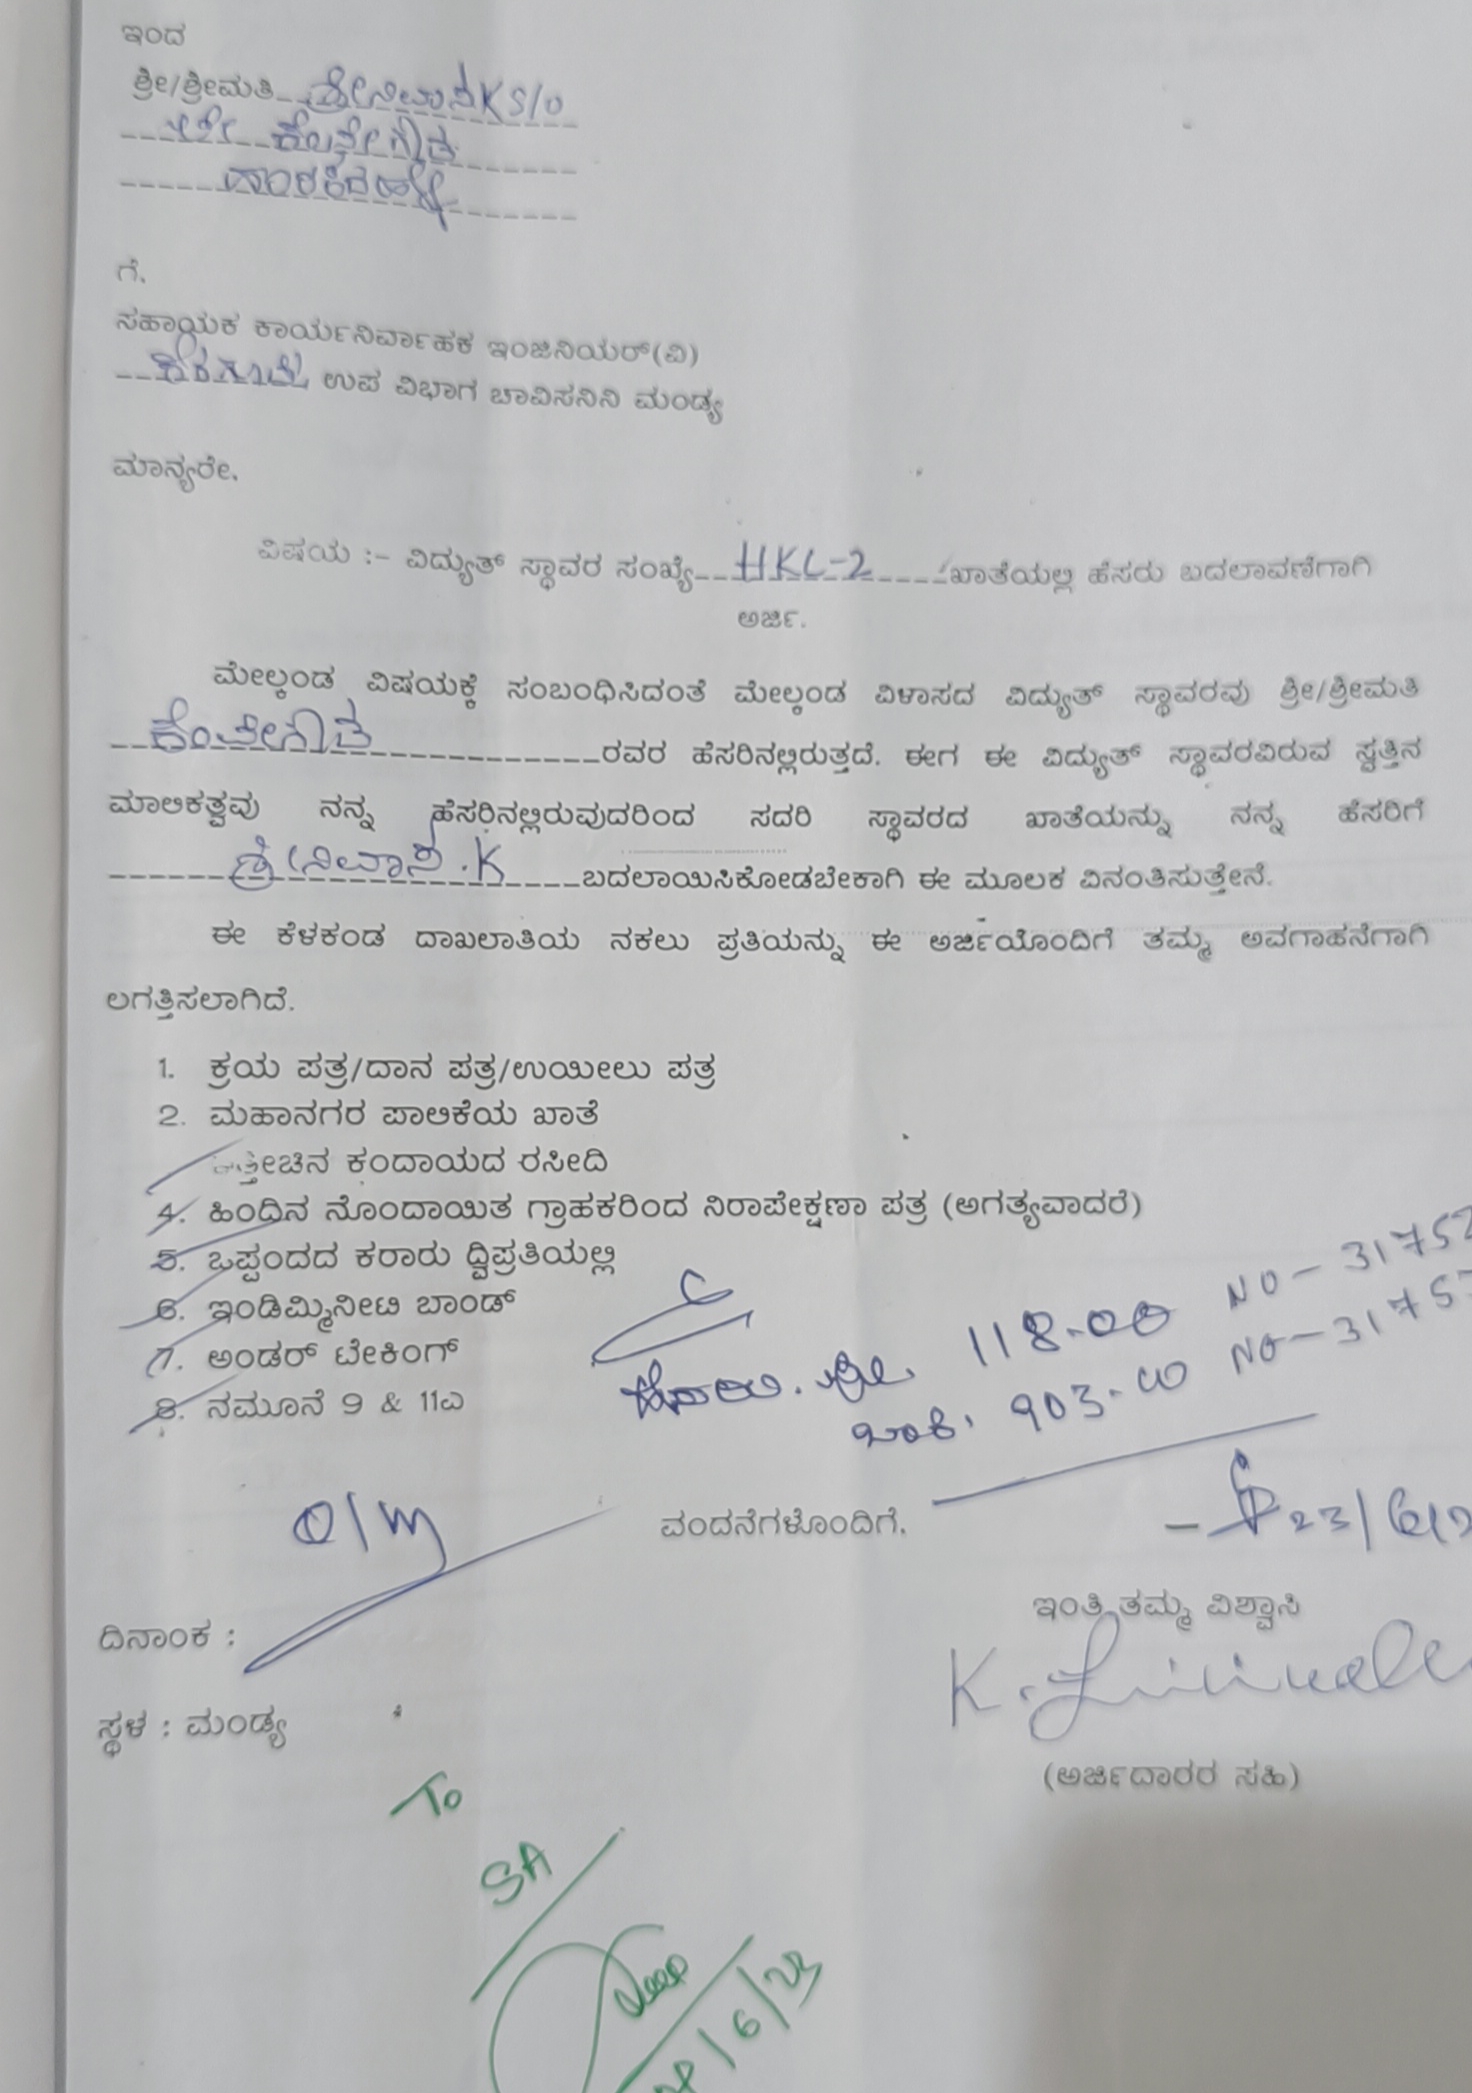 ಇಂದ
ಶ್ರೀ/ಶ್ರೀಮತಿ ಶ್ರೀನಿವಾಸ K S/O
ಗೆ.
ಸಹಾಯಕ ಕಾರ್ಯನಿರ್ವಾಹಕ ಇಂಜಿನಿಯರ್(ವಿ)
ಉಪ ವಿಭಾಗ ಚಾವಿಸನಿನಿ ಮಂಡ್ಯ
ಮಾನ್ಯರೇ,
ವಿಷಯ :- ವಿದ್ಯುತ್ ಸ್ಥಾವರ ಸಂಖ್ಯೆ HKL-2 ಖಾತೆಯಲ್ಲಿ ಹೆಸರು ಬದಲಾವಣೆಗಾಗಿ
ಅರ್ಜಿ.
ಮೇಲ್ಕಂಡ ವಿಷಯಕ್ಕೆ ಸಂಬಂಧಿಸಿದಂತೆ ಮೇಲ್ಕಂಡ ವಿಳಾಸದ ವಿದ್ಯುತ್ ಸ್ಥಾವರವು ಶ್ರೀ/ಶ್ರೀಮತಿ
ರವರ ಹೆಸರಿನಲ್ಲಿರುತ್ತದೆ. ಈಗ ಈ ವಿದ್ಯುತ್ ಸ್ಥಾವರವಿರುವ ಸ್ವತ್ತಿನ
ಮಾಲಿಕತ್ವವು ನನ್ನ ಹೆಸರಿನಲ್ಲಿರುವುದರಿಂದ ಸದರಿ ಸ್ಥಾವರದ ಖಾತೆಯನ್ನು ನನ್ನ ಹೆಸರಿಗೆ
ಶ್ರೀನಿವಾಸ.K ಬದಲಾಯಿಸಿಕೋಡಬೇಕಾಗಿ ಈ ಮೂಲಕ ವಿನಂತಿಸುತ್ತೇನೆ.
ಈ ಕೆಳಕಂಡ ದಾಖಲಾತಿಯ ನಕಲು ಪ್ರತಿಯನ್ನು ಈ ಅರ್ಜಿಯೊಂದಿಗೆ ತಮ್ಮ ಅವಗಾಹನೆಗಾಗಿ
ಲಗತ್ತಿಸಲಾಗಿದೆ.
1. ಕ್ರಯ ಪತ್ರ/ದಾನ ಪತ್ರ/ಉಯೀಲು ಪತ್ರ
2. ಮಹಾನಗರ ಪಾಲಿಕೆಯ ಖಾತೆ
ಕಂದಾಯದ ರಸೀದಿ
4. ಹಿಂದಿನ ನೊಂದಾಯಿತ ಗ್ರಾಹಕರಿಂದ ನಿರಾಪೇಕ್ಷಣಾ ಪತ್ರ (ಅಗತ್ಯವಾದರೆ)
5. ಒಪ್ಪಂದದ ಕರಾರು ದ್ವಿಪ್ರತಿಯಲ್ಲಿ
6. ಇಂಡಿಮ್ಮಿನೀಟಿ ಬಾಂಡ್
7. ಅಂಡರ್ ಟೇಕಿಂಗ್
8. ನಮೂನೆ 9 & 11ಎ
118-00 NO-3175
ಬಾಕಿ. 903-00 NO-3175
O/M
ವಂದನೆಗಳೊಂದಿಗೆ.
23/6/2
ಇಂತಿ ತಮ್ಮ ವಿಶ್ವಾಸಿ
ದಿನಾಂಕ :
ಸ್ಥಳ : ಮಂಡ್ಯ
(ಅರ್ಜಿದಾರರ ಸಹಿ)
To
SA
/6/23